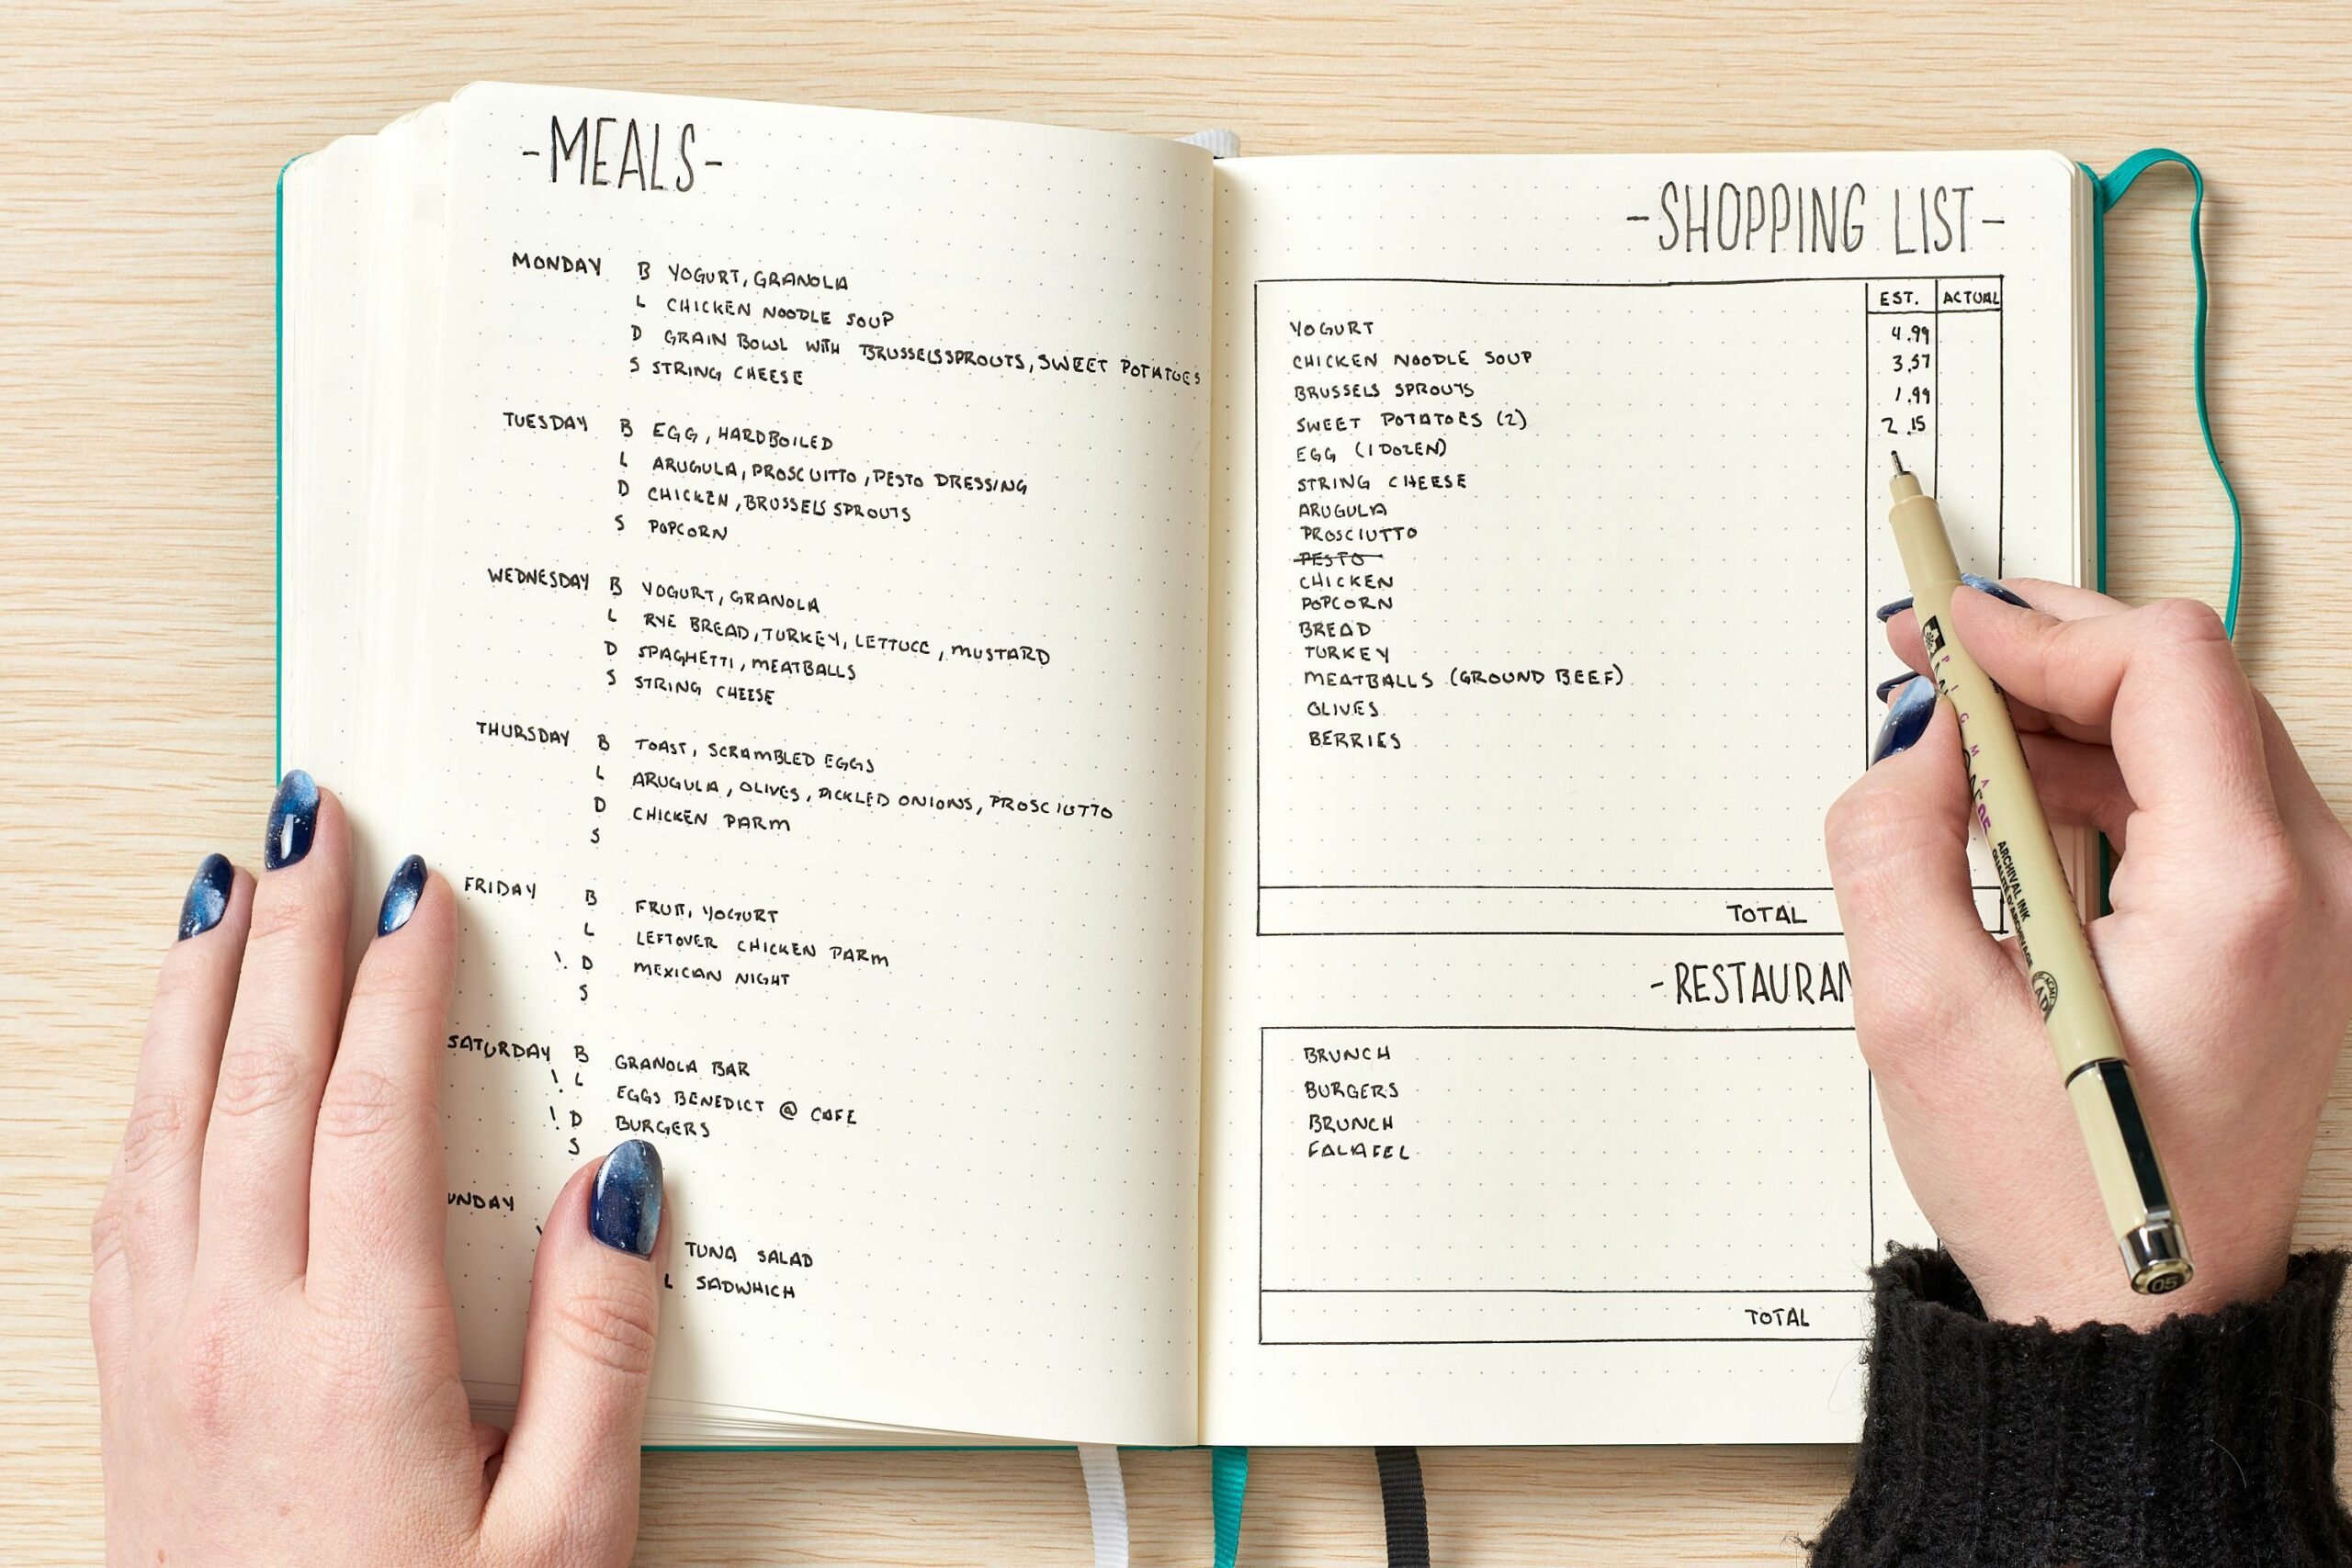 -MEALS-
MONDAY B YOGURT, GRANOLA
L CHICKEN NOODLE SOUP
D GRAIN BOWL WITH BRUSSELS SPROUTS, SWEET POTATOES
S STRING CHEESE
TUESDAY B EGG, HARDBOILED
L ARUGULA, PROSCUITTO, PESTO DRESSING
D CHICKEN, BRUSSELS SPROUTS
S POPCORN
WEDNESDAY B YOGURT, GRANOLA
L RYE BREAD, TURKEY, LETTUCE, MUSTARD
D SPAGHETTI, MEATBALLS
S STRING CHEESE
THURSDAY B TOAST, SCRAMBLED EGGS
L ARUGULA, OLIVES, PICKLED ONIONS, PROSCIUTTO
D CHICKEN PARM
S
FRIDAY B FRUIT, YOGURT
L LEFTOVER CHICKEN PARM
! D MEXICAN NIGHT
S
SATURDAY B GRANOLA BAR
! L EGGS BENEDICT @ CAFE
! D BURGERS
S
UNDAY
TUNA SALAD
L SADWHICH
-SHOPPING LIST-
EST. ACTUAL
YOGURT 4.99
CHICKEN NOODLE SOUP 3.57
BRUSSELS SPROUTS 1.99
SWEET POTATOES (2) 2.15
EGG (1 DOZEN)
STRING CHEESE
ARUGULA
PROSCIUTTO
PESTO
CHICKEN
POPCORN
BREAD
TURKEY
MEATBALLS (GROUND BEEF)
OLIVES
BERRIES
TOTAL
-RESTAURAN
BRUNCH
BURGERS
BRUNCH
FALAFEL
TOTAL
ARCHIVAL INK
05